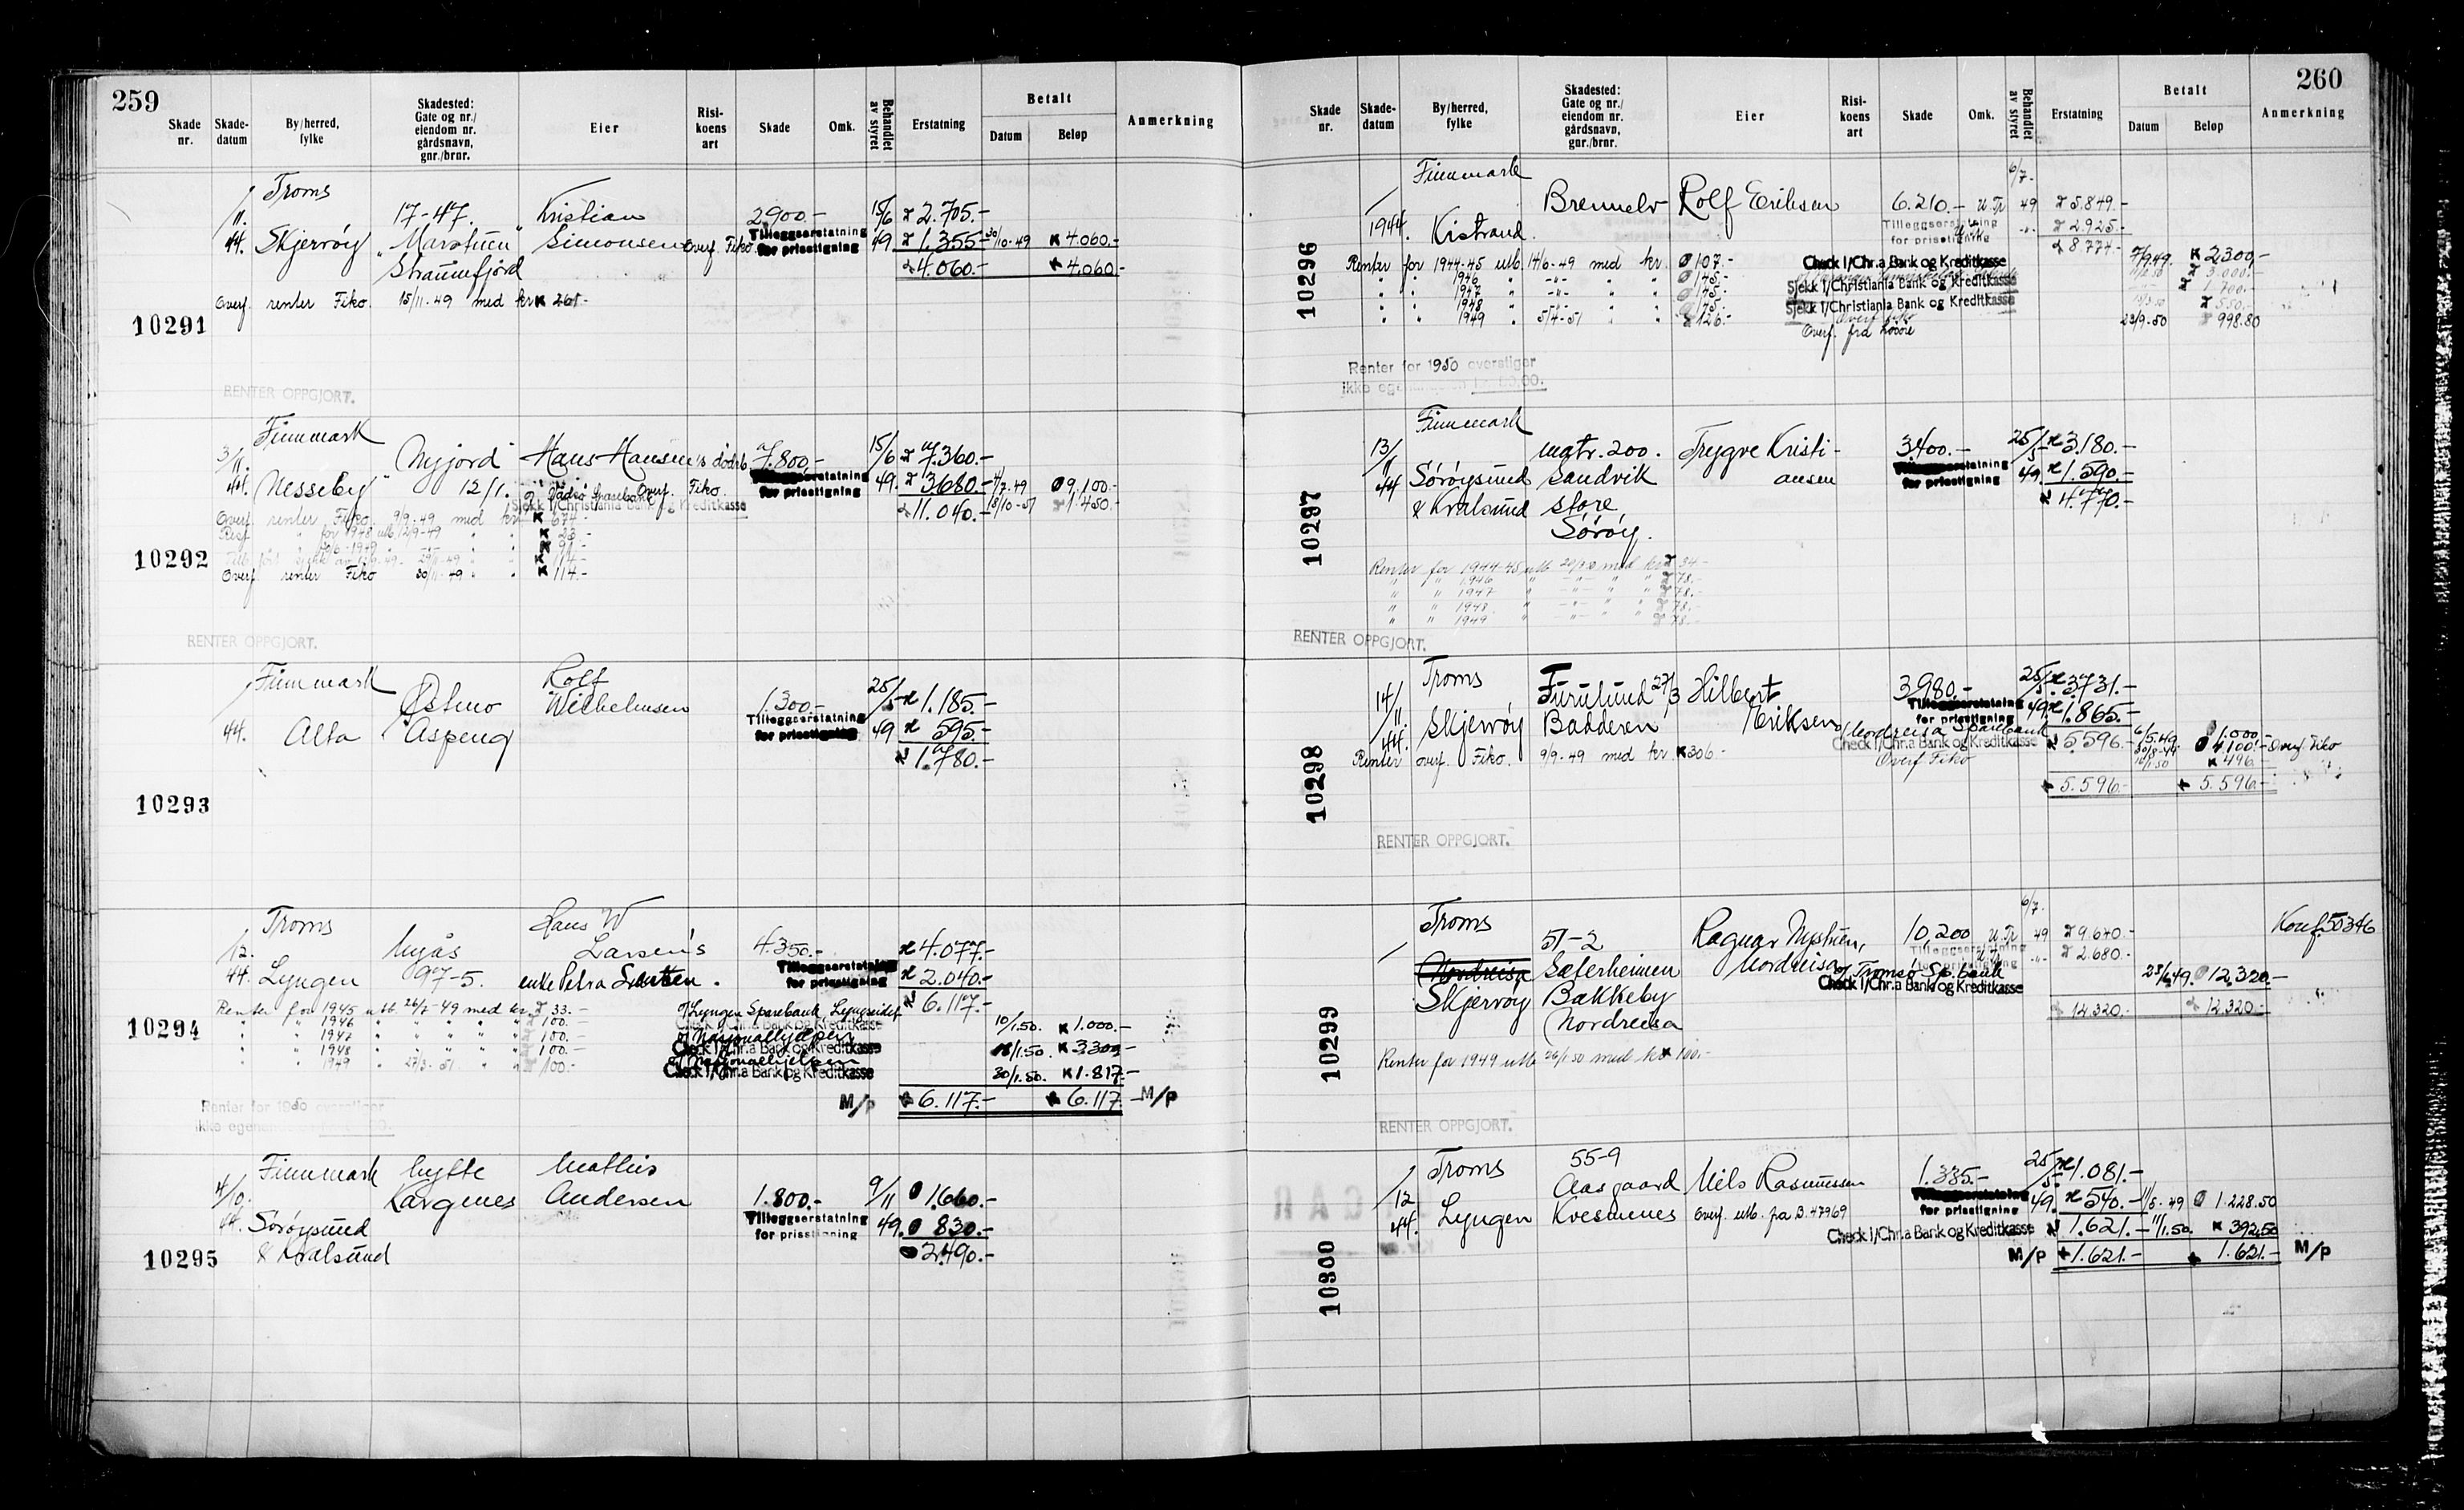 259
Skade nr.
Skade-datum
By/herred, fylke
Skadested: Gate og nr./ eiendom nr. gårdsnavn, gnr./brnr.
Eier
Risi-koens art
Skade
Omk.
Behandlet av styret
Erstatning
Betalt
Datum
Beløp
Anmerkning
10291
Troms
11. 17-47. Kristian 2900.- 15/6 2.705.-
44. Skjervøy Simonsen Overf. Fiko. Tilleggserstatning for prisstigning 49 1.355- 30/10-49 4.060.-
Straumfjord 4.060.- 4.060.-
Overf. renter Fiko. 15/11-49 med kr 261-
RENTER OPPGJORT.
10292
Finnmark
3/11. Nyjord Hans Hansen's dødsb. 7.800,- 15/6 7.360.-
44. Nesseby 12/1. Overf. Fiko. Tilleggserstatning for prisstigning 49. 3680.- 9,100.-
Sjekk 1/Christiania Bank og Kreditkasse 11.040.- 18/10-51 1.450.-
Overf. renter Fiko. 9/9-49 med kr 674-
Overf renter Fiko 30/11-49 114.-
RENTER OPPGJORT.
10293
Finnmark Rolf
Østmo Wilhelmsen 1.300.- 25/5 1.185.-
44. Alta Aspeng Tilleggserstatning for prisstigning 49 595.-
1.780.-
10294
Troms Hans W
12. Nyås Larsen's 4.350.- 4.077.-
44. Lyngen 97-5. enke Petra Tilleggserstatning for prisstigning 2.040.-
Renter for 1945 utb. 26/7-49 med kr. 33.- Lyngen Sparebank Lyngseidet 6.117.-
" " 1946 " " " " " 100.- Check 1/Chr.a Bank og Kreditkasse 10/1.50. 1.000.-
" " 1947 " " " " " 100.- Nasjonalhjelpen
" " 1948 " " " " " 100.- Check 1/Chr.a Bank og Kreditkasse 18/1.50. 3300,-
" " 1949 " 27/3-51 " " 100.- Nasjonalhjelpen
Check 1/Chr.a Bank og Kreditkasse 30/1.50. 1.817.-
M/p 6.117.- 6.117. M/p
Renter for 1950 overstiger
ikke
10295
Finnmark hytte Mathis
4/10. Kargenes Andersen 1.800.- 9/11 1.660.-
44. Sørøysund Tilleggserstatning for prisstigning 49. 830.-
& Kvalsund 2.490.-
260
Skade nr.
Skade-datum
By/herred, fylke
Skadested: Gate og nr./ eiendom nr. gårdsnavn, gnr./brnr.
Eier
Risi-koens art
Skade
Omk.
Behandlet av styret
Erstatning
Betalt
Datum
Beløp
Anmerkning
10296
Finnmark 6/7-
Brennelv Rolf Eriksen 6.210.- U.Tr 49 5.849.-
1944. Kistrand. Tilleggserstatning for prisstigning 2.925.-
8774.-
Renter for 1944-45 utb. 14/6-49 med kr. 107.- Check 1/Chr.a Bank og Kreditkasse 7/9.49. 2300.-
" " 1946 " -"- " " 145.- 3.000.-
" " 1947 " -"- " " 145.- Sjekk 1/Christiania Bank og Kreditkasse 1.700.-
" " 1948 " -"- " " Sjekk 1/Christiania Bank og Kreditkasse 550.-
" " 1949 " 5/4-51 " " 126.- 23/9-50 998.80
Overf. fra
Renter for 1950 overstiger
ikke
10297
Finnmark
13/11 matr. 200. Trygve Kristi- 3400.- 25/5 3.180.-
44 Sørøysund Sandvik ansen Tilleggserstatning for prisstigning 49. 1.590.-
& Kvalsund store 4.770.-
Sørøy.
Renter for 1944-45 utb. med kr 34.-
" " 1946 " -"- " " 78.-
" " 1947 " -"- " " 78.-
" " 1948 " -"- " " 78.-
" " 1949 " -"- " " 78.-
RENTER OPPGJORT.
10298
Troms
14/11. Furulund 27/3 Hilbert 3980.- 25/5. 3731.-
44. Skjervøy Badderen Eriksen Tilleggserstatning for prisstigning 49 1.865.-
Nordreisa Sparebank
Check 1/Chr.a Bank og Kreditkasse 5596.- 6/5.49 1.000.-
Renter overf. Fiko. 9/9-49 med kr. 306- Overf Fiko 4.100.- Overf. Fiko
496
5.596.- 5.596.-
RENTER OPPGJORT.
10299
Troms 51-2 6/7.
Ragnar Nystuen, 10,200 U.Tr 49 9.640.- Konf. 50346
Nordreisa Sæterheimen Nordreisa Tilleggserstatning for prisstigning 2.680.-
Skjervøy Bakkeby Tromsø Sp.bank
Check 1/Chr.a Bank og Kreditkasse 12,320.-
Nordreisa 12.320.- 12.320.-
Renter for 1949 utb 26/1.50 med kr 100.-
RENTER OPPGJORT.
10300
Troms 55-9
12 Aasgaard Nils Rasmussen 1.335.- 25/5 1.081.-
44. Lyngen Kvesmenes Overf. utb. pa B. 47969 Tilleggserstatning for prisstigning 49. 540.- 11/5-49 1.228.50
Check 1/Chr.a Bank og Kreditkasse 1.621.- 11/1.50. 392,50
M/p 1.621.- 1.621.- M/p